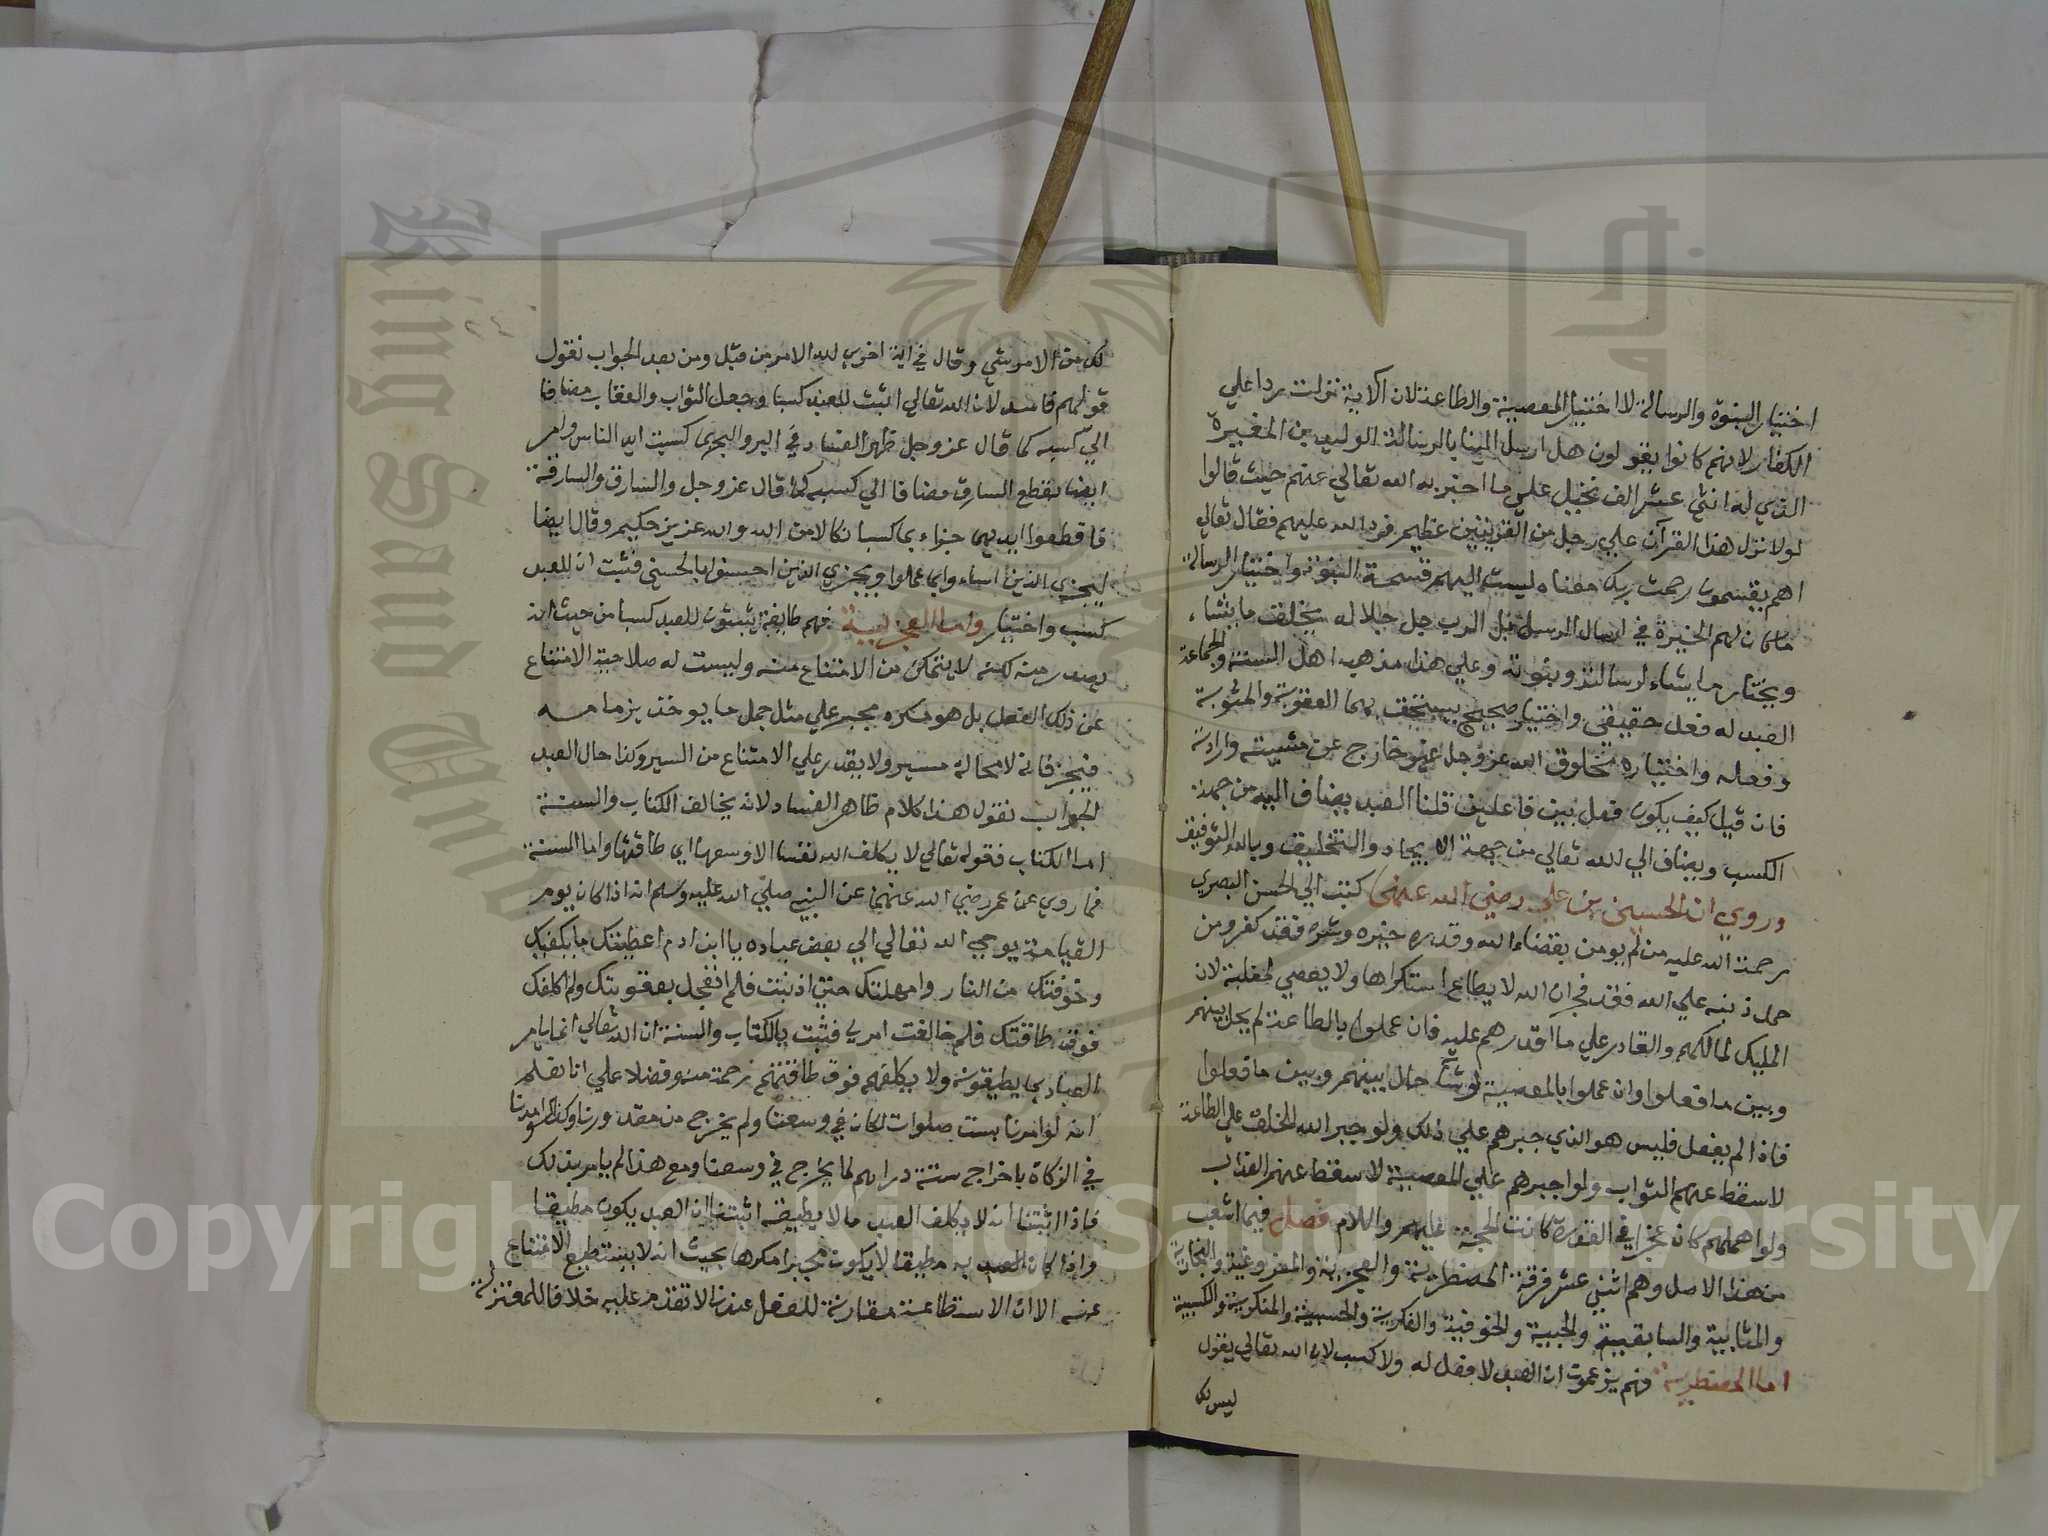 اختيار النبوة والرسالة لا اختيار المعصية والطاعة لان الاية نزلت ردا علي
الكفار لانهم كانوا يقولون هل ارسل الينا بالرسالة الوليد بن المغيرة
الذي له اثني عشر الف نخيل علي ما اخبر به الله تعالي عنهم حيث قالوا
لولا نزل هذا القرآن علي رجل من القريتين عظيم فرد الله عليهم فقال تعالي
اهم يقسمون رحمت ربك معناه ليست اليهم قسمة النبوة واختيار الرسالة
ما كان لهم الخيرة في ارسال الرسل قبل الرب جل جلاله يخلق ما يشاء
ويختار ما يشاء لرسالته ونبوته وعلي هذا مذهب اهل السنة والجماعة
العبد له فعل حقيقي واختيار صحيح يستحق بهما العقوبة والمثوبة
وفعله واختياره مخلوق الله عز وجل غير خارج عن مشيته وارادته
فان قيل كيف يكون فعل بين فاعلين قلنا العبد يضاف اليه من جهة
الكسب ويضاف الي الله تعالي من جهة الايجاد والتخليق وبالله التوفيق
وروي ان الحسين بن علي رضي الله عنهما كتب الي الحسن البصري
رحمة الله عليه من لم يومن بقضاء الله وقدره خيره وشره فقد كفر ومن
حمل ذنبه علي الله فقد فجر ان الله لا يطاع استكراها ولا يعصي لغلبة لان
المليك لمالكهم والقادر علي ما اقدرهم عليه فان عملوا بالطاعة لم يحل بينهم
وبين ما فعلوا وان عملوا بالمعصية لو شآء حال بينهم وبين ما فعلوا
فاذا لم يفعل فليس هو الذي جبرهم علي ذلك ولو جبر الله الخلق علي الطاعة
لاسقط عنهم الثواب ولو اجبرهم علي المعصية لاسقط عنهم العذاب
ولو اهملهم كان عجزا في القدرة كانت الحجة عليهم والسلام فصل فيما اشعب
من هذا الاصل وهم اثني عشر فرقة المضطرية والعجزية والمفروغية والنجارية
والمثابية والسابقية والحبية والخوفية والفكرية والحسبية والمنكرية والكسبية
اما المضطرية فهم يزعمون ان العبد لا فعل له ولا كسب لان الله تعالي يقول
ليس لك
٢٤
لك من الامر شي وقال في اية اخري لله الامر من قبل ومن بعد الجواب نقول
قولهم فاسد لان الله تعالي اثبت للعبد كسبا وجعل الثواب والعقاب مضافا
الي كسبه كما قال عز وجل ظهر الفساد في البر والبحر بما كسبت ايدي الناس وامر
ايضا بقطع السارق مضافا الي كسبه كما قال عز وجل والسارق والسارقة
فاقطعوا ايديهما جزاء بما كسبا نكالا من الله والله عزيز حكيم وقال ايضا
ليجزي الذين اساءوا بما عملوا ويجزي الذين احسنوا بالحسني فثبت ان للعبد
كسب واختيار واما العجزية فهم طايفة يثبتون للعبد كسبا من حيث انه
يصدر منه لكنه لا يتمكن من الامتناع منه وليست له صلاحية الامتناع
عن ذلك الفعل بل هو مكره مجبر علي مثل جمل ما يوخذ بزمامه
فيجر فانه لا محالة مسير ولا يقدر علي الامتناع من السير وكذا حال العبد
الجواب نقول هذا كلام ظاهر الفساد لانه يخالف الكتاب والسنة
اما الكتاب فقوله تعالي لا يكلف الله نفسا الا وسعها اي طاقتها واما السنة
فما روي عن عمر رضي الله عنهما عن النبي صلي الله عليه وسلم انه اذا كان يوم
القيامة يوحي الله تعالي الي بعض عباده يا ابن ادم اعطيتك ما يكفيك
وخوفتك من النار وامهلتك حتي اذنبت فلم اعجل بعقوبتك ولم اكلفك
فوق طاقتك فلم خالفت امري فثبت بالكتاب والسنة ان الله تعالي انما يامر
العباد بما يطيقونه ولا يكلفهم فوق طاقتهم رحمة منه وفضلا علي انا نعلم
انه لو امرنا بست صلوات لكان في وسعنا ولم يخرج من مقدورنا وكذا لو امرنا
في الزكاة باخراج ستة دراهم لما يخرج في وسعنا ومع هذا لم يامر بذلك
فاذا اثبتنا انه لا يكلف العبد ما لا يطيقه اثبتنا ان العبد يكون مطيقا
واذا كان العبد به مطيقا لا يكون مجبرا مكرها بحيث انه لا يستطيع الامتناع
عنه الا ان الاستطاعة مقارنة للفعل عندنا لا تتقدم عليه خلافا للمعتزلة
Copyright © King Saud University
King Saud University